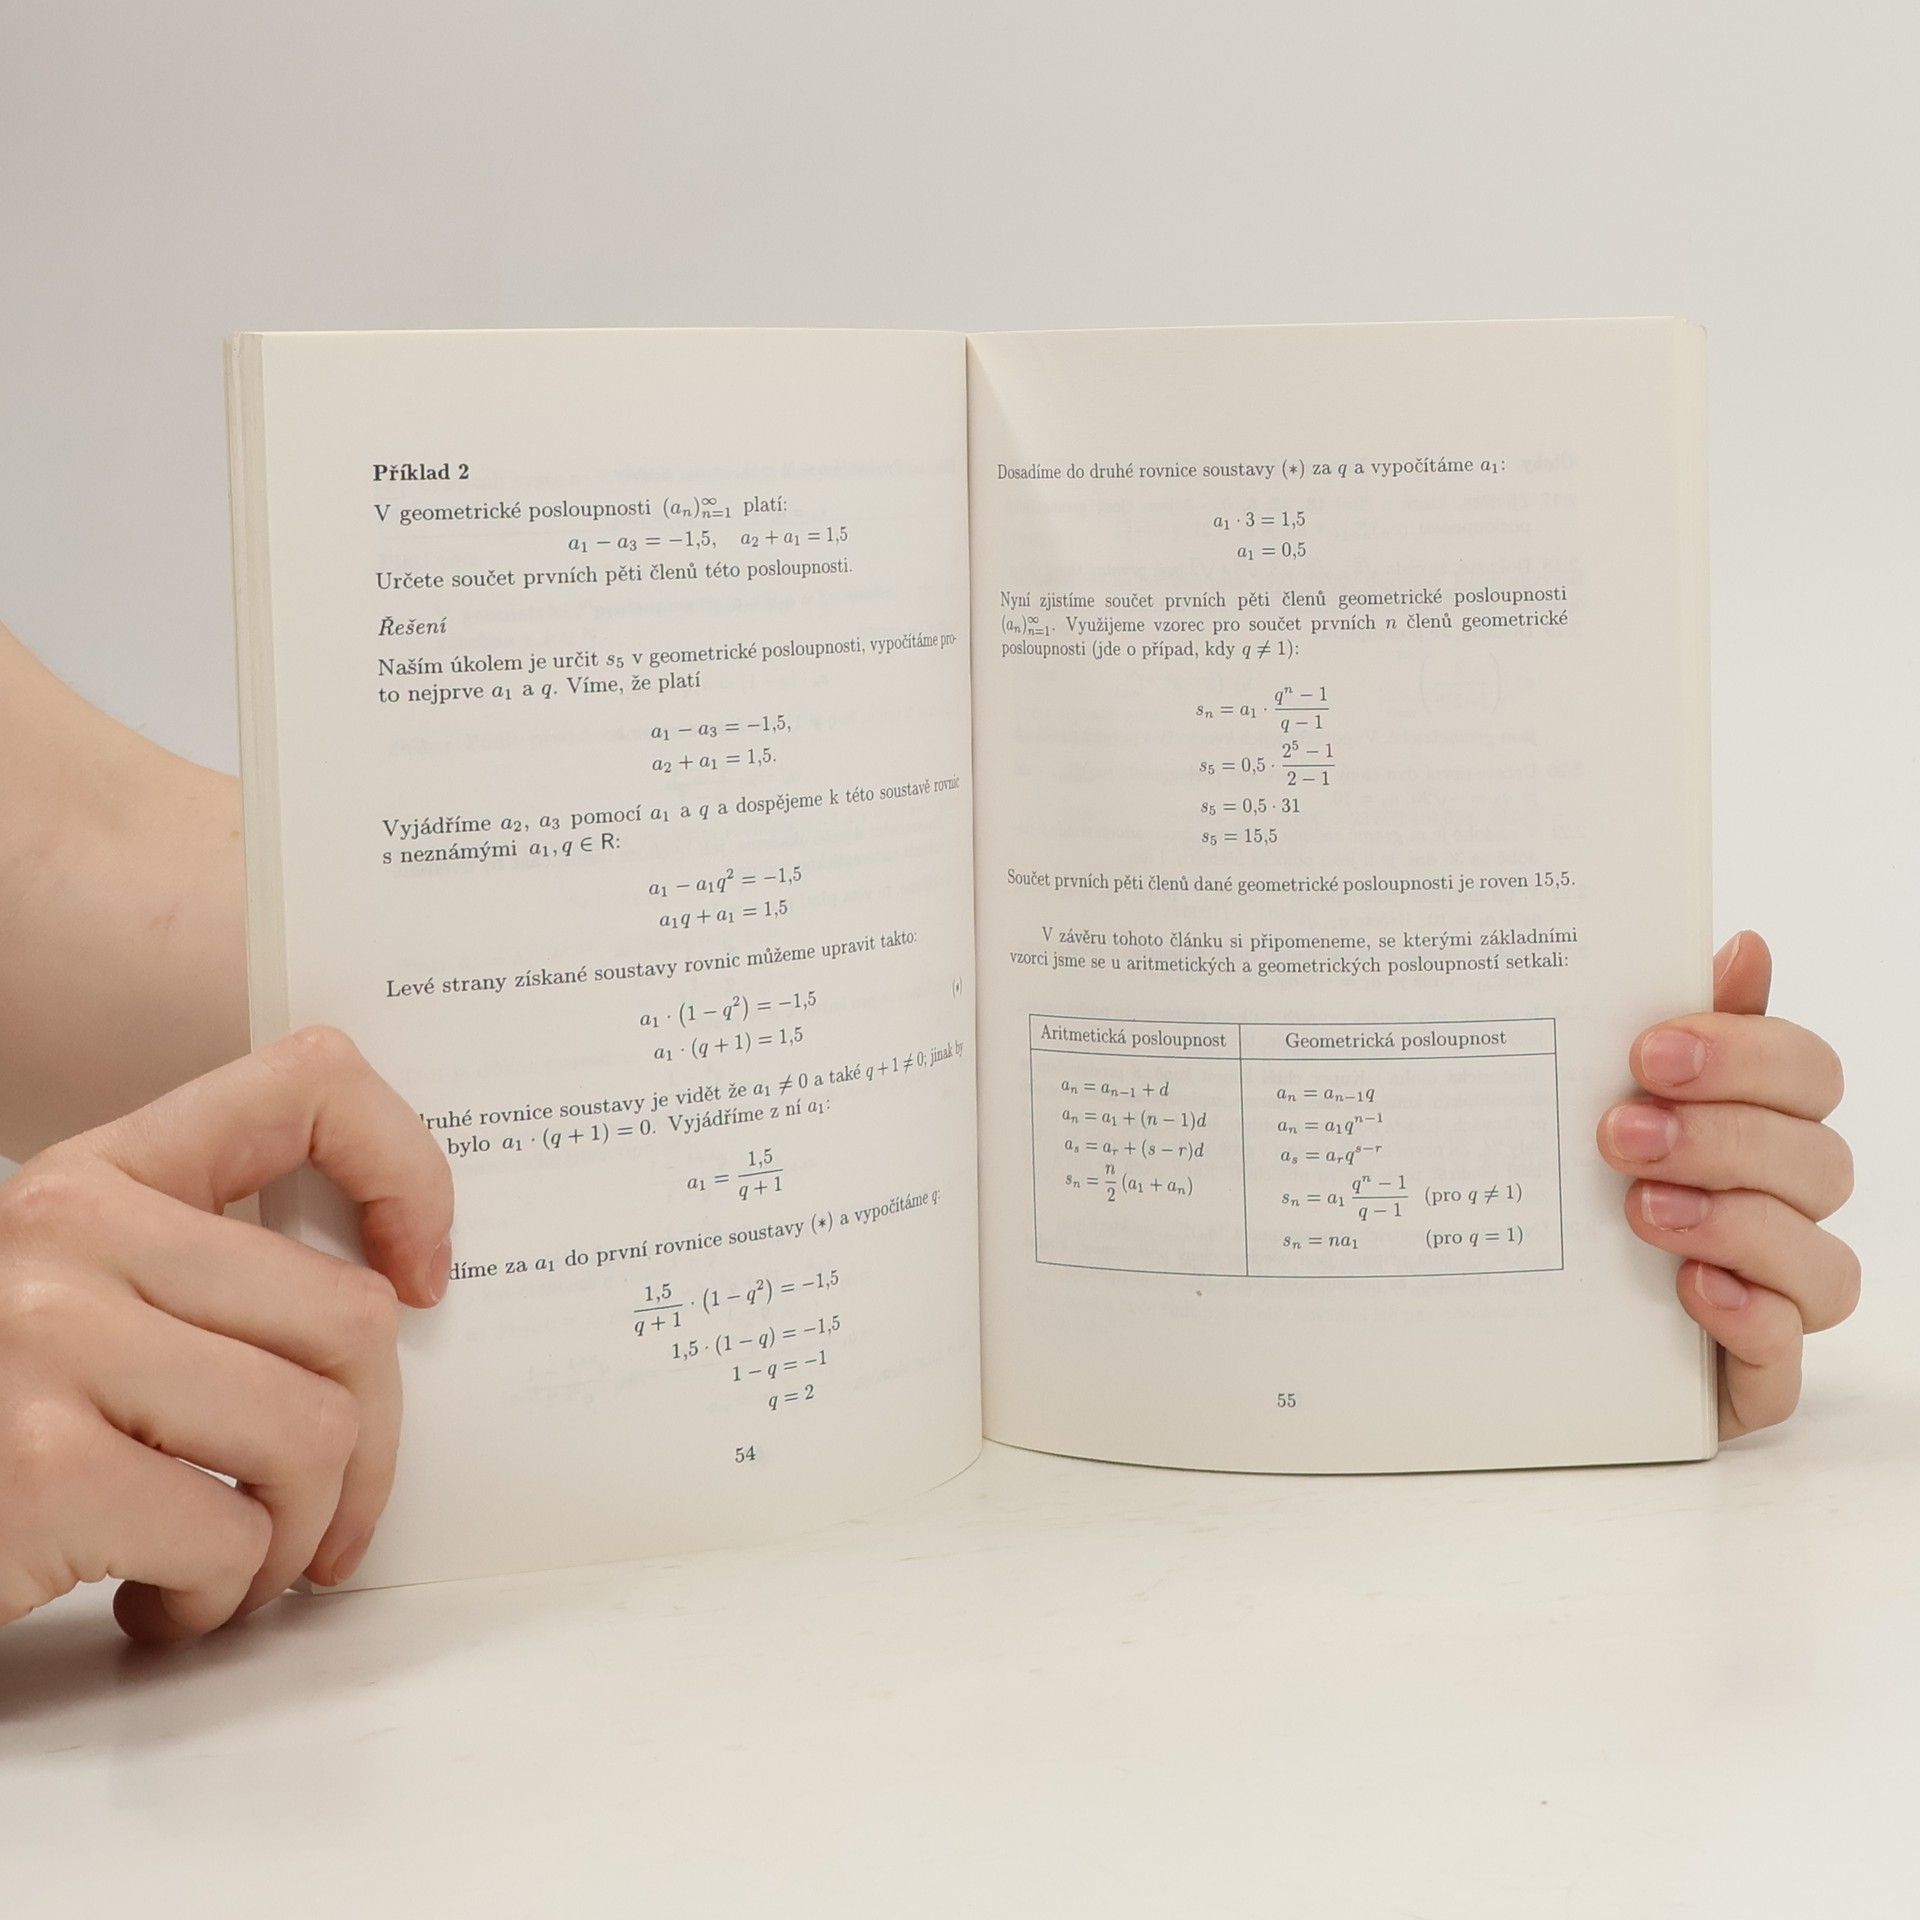 Příklad 2
V geometrické posloupnosti (aₙ)ₙ₌₁^∞ platí:
a₁ − a₃ = −1,5, a₂ + a₁ = 1,5
Určete součet prvních pěti členů této posloupnosti.
Řešení
Naším úkolem je určit s₅ v geometrické posloupnosti, vypočítáme pro-
to nejprve a₁ a q. Víme, že platí
a₁ − a₃ = −1,5,
a₂ + a₁ = 1,5.
Vyjádříme a₂, a₃ pomocí a₁ a q a dospějeme k této soustavě rovnic
s neznámými a₁, q ∈ R:
a₁ − a₁q² = −1,5
a₁q + a₁ = 1,5
Levé strany získané soustavy rovnic můžeme upravit takto:
a₁ · (1 − q²) = −1,5
a₁ · (q + 1) = 1,5 (*)
druhé rovnice soustavy je vidět že a₁ ≠ 0 a také q + 1 ≠ 0; jinak by
bylo a₁ · (q + 1) = 0. Vyjádříme z ní a₁:
a₁ = 1,5/(q + 1)
díme za a₁ do první rovnice soustavy (*) a vypočítáme q:
1,5/(q + 1) · (1 − q²) = −1,5
1,5 · (1 − q) = −1,5
1 − q = −1
q = 2
54
Dosadíme do druhé rovnice soustavy (*) za q a vypočítáme a₁:
a₁ · 3 = 1,5
a₁ = 0,5
Nyní zjistíme součet prvních pěti členů geometrické posloupnosti
(aₙ)ₙ₌₁^∞. Využijeme vzorec pro součet prvních n členů geometrické
posloupnosti (jde o případ, kdy q ≠ 1):
sₙ = a₁ · (qⁿ − 1)/(q − 1)
s₅ = 0,5 · (2⁵ − 1)/(2 − 1)
s₅ = 0,5 · 31
s₅ = 15,5
Součet prvních pěti členů dané geometrické posloupnosti je roven 15,5.
V závěru tohoto článku si připomeneme, se kterými základními
vzorci jsme se u aritmetických a geometrických posloupností setkali:
Aritmetická posloupnost
aₙ = aₙ₋₁ + d
aₙ = a₁ + (n − 1)d
aₛ = aᵣ + (s − r)d
sₙ = n/2 (a₁ + aₙ)
Geometrická posloupnost
aₙ = aₙ₋₁q
aₙ = a₁qⁿ⁻¹
aₛ = aᵣqˢ⁻ʳ
sₙ = a₁ (qⁿ − 1)/(q − 1) (pro q ≠ 1)
sₙ = na₁ (pro q = 1)
55